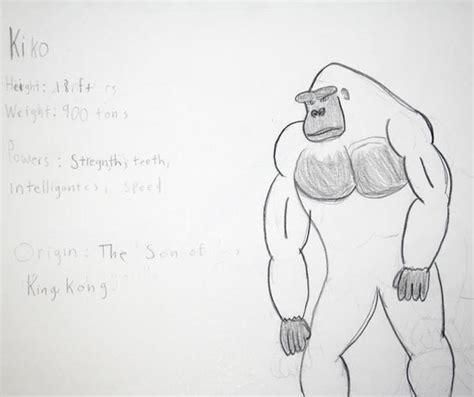 Kiko
Height:
Weight: 900 tons
Powers: Stregnth, teeth,
intelligantes, speed
Origin: The "Son of
King Kong"